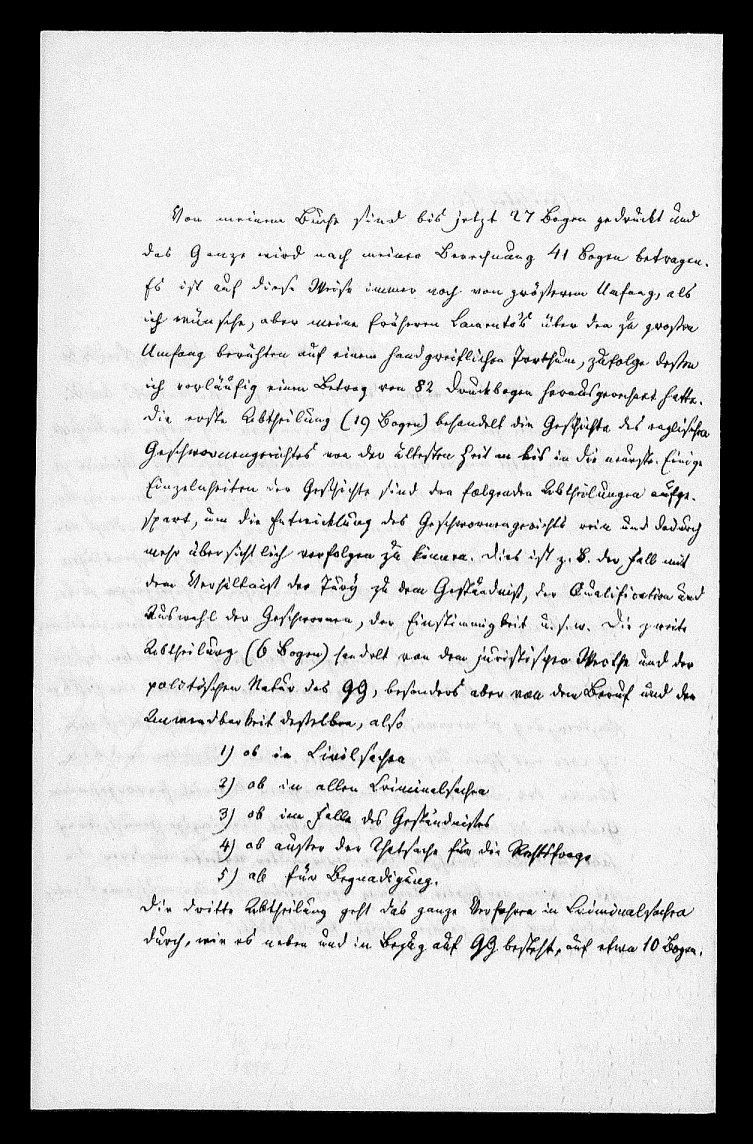 Von meinem Buche sind bis jetzt 27 Bogen gedruckt und
das Ganze wird nach meiner Berechnung 41 Bogen betragen.
Es ist auf diese Weise immer noch von größerem Umfang, als
ich wünsche, aber meine früheren Lamento's über den zu großen
Umfang beruhten auf einem handgreiflichen Irrthum, zufolge dessen
ich vorläufig einen Betrag von 82 Druckbogen herausgerechnet hatte.
Die erste Abtheilung (19 Bogen) behandelt die Geschichte des englischen
Geschwornengerichtes von der ältesten Zeit an bis in die neueste. Einige
Einzelnheiten der Geschichte sind den folgenden Abtheilungen aufge-
spart, um die Entwicklung des Geschwornengerichts rein und dadurch
mehr übersichtlich verfolgen zu können. Dies ist z. B. der Fall mit
dem Verhältniß der Jury zu dem Geständniß, der Qualification und
Auswahl der Geschwornen, der Einstimmigkeit u.s.w. Die zweite
Abtheilung (6 Bogen) handelt von dem juristischen Werthe und der
politischen Natur des GG, besonders aber von dem Beruf und der
Anwendbarkeit desselben, also
1) ob in Civilsachen
2) ob in allen Criminalsachen
3) ob im Falle des Geständnisses
4) ob außer der Thatsache für die Rechtsfrage
5) ob für Begnadigung.
Die dritte Abtheilung geht das ganze Verfahren in Criminalsachen
durch, wie es neben und in Bezug auf GG besteht, auf etwa 10 Bogen.